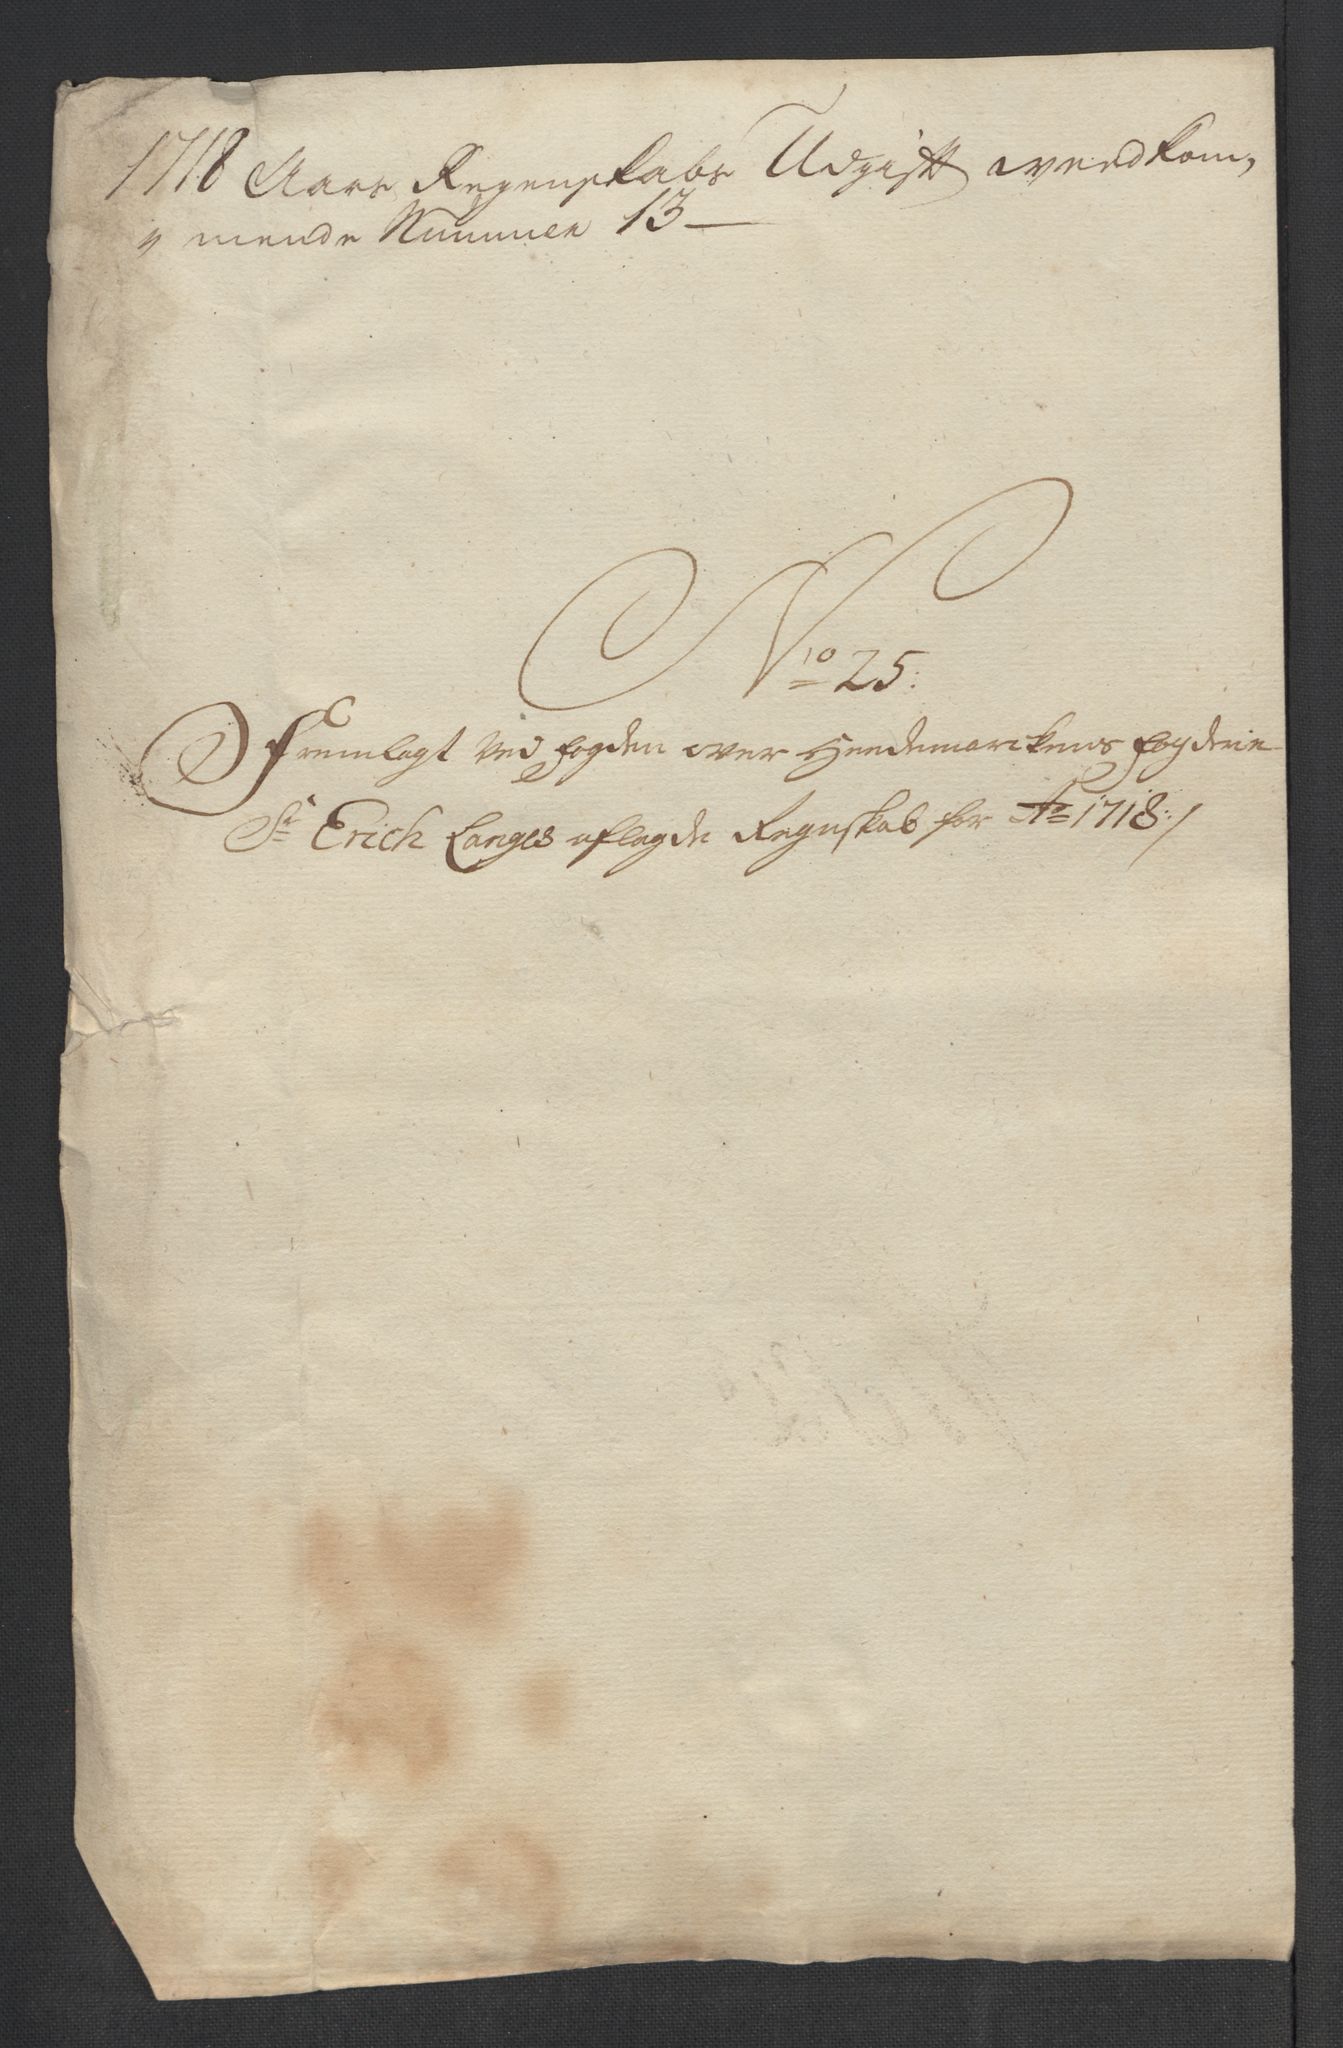 1718 Aars Regenskabs Udgift vedkom,
mende Nummer 13
No 25:
Fremlagt Ved fogden over Heedemarckens fogderie
Sr Erich Langes aflagde Regnskab for Ao 1718:/